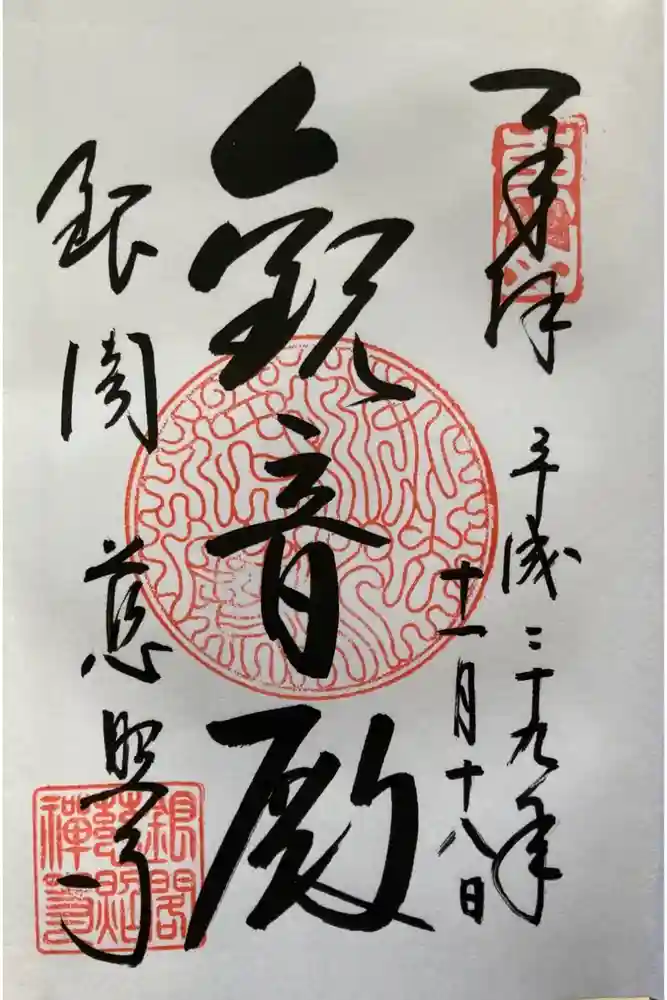 奉拝
平成二十九年
十一月十八日
観音殿
銀閣 慈照寺
銀閣
慈照
禅寺